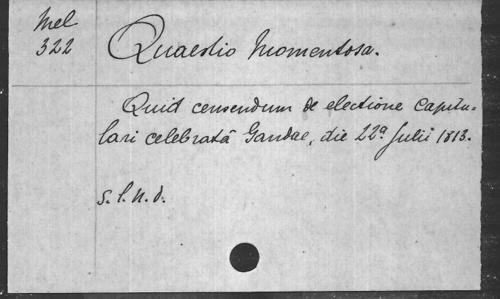 Mel
322
Quaestio Momentosa.
Quid censendum de electione Capitu-
lari celebratâ Gandae, die 22a Julii 1813.
s. l. n. d.